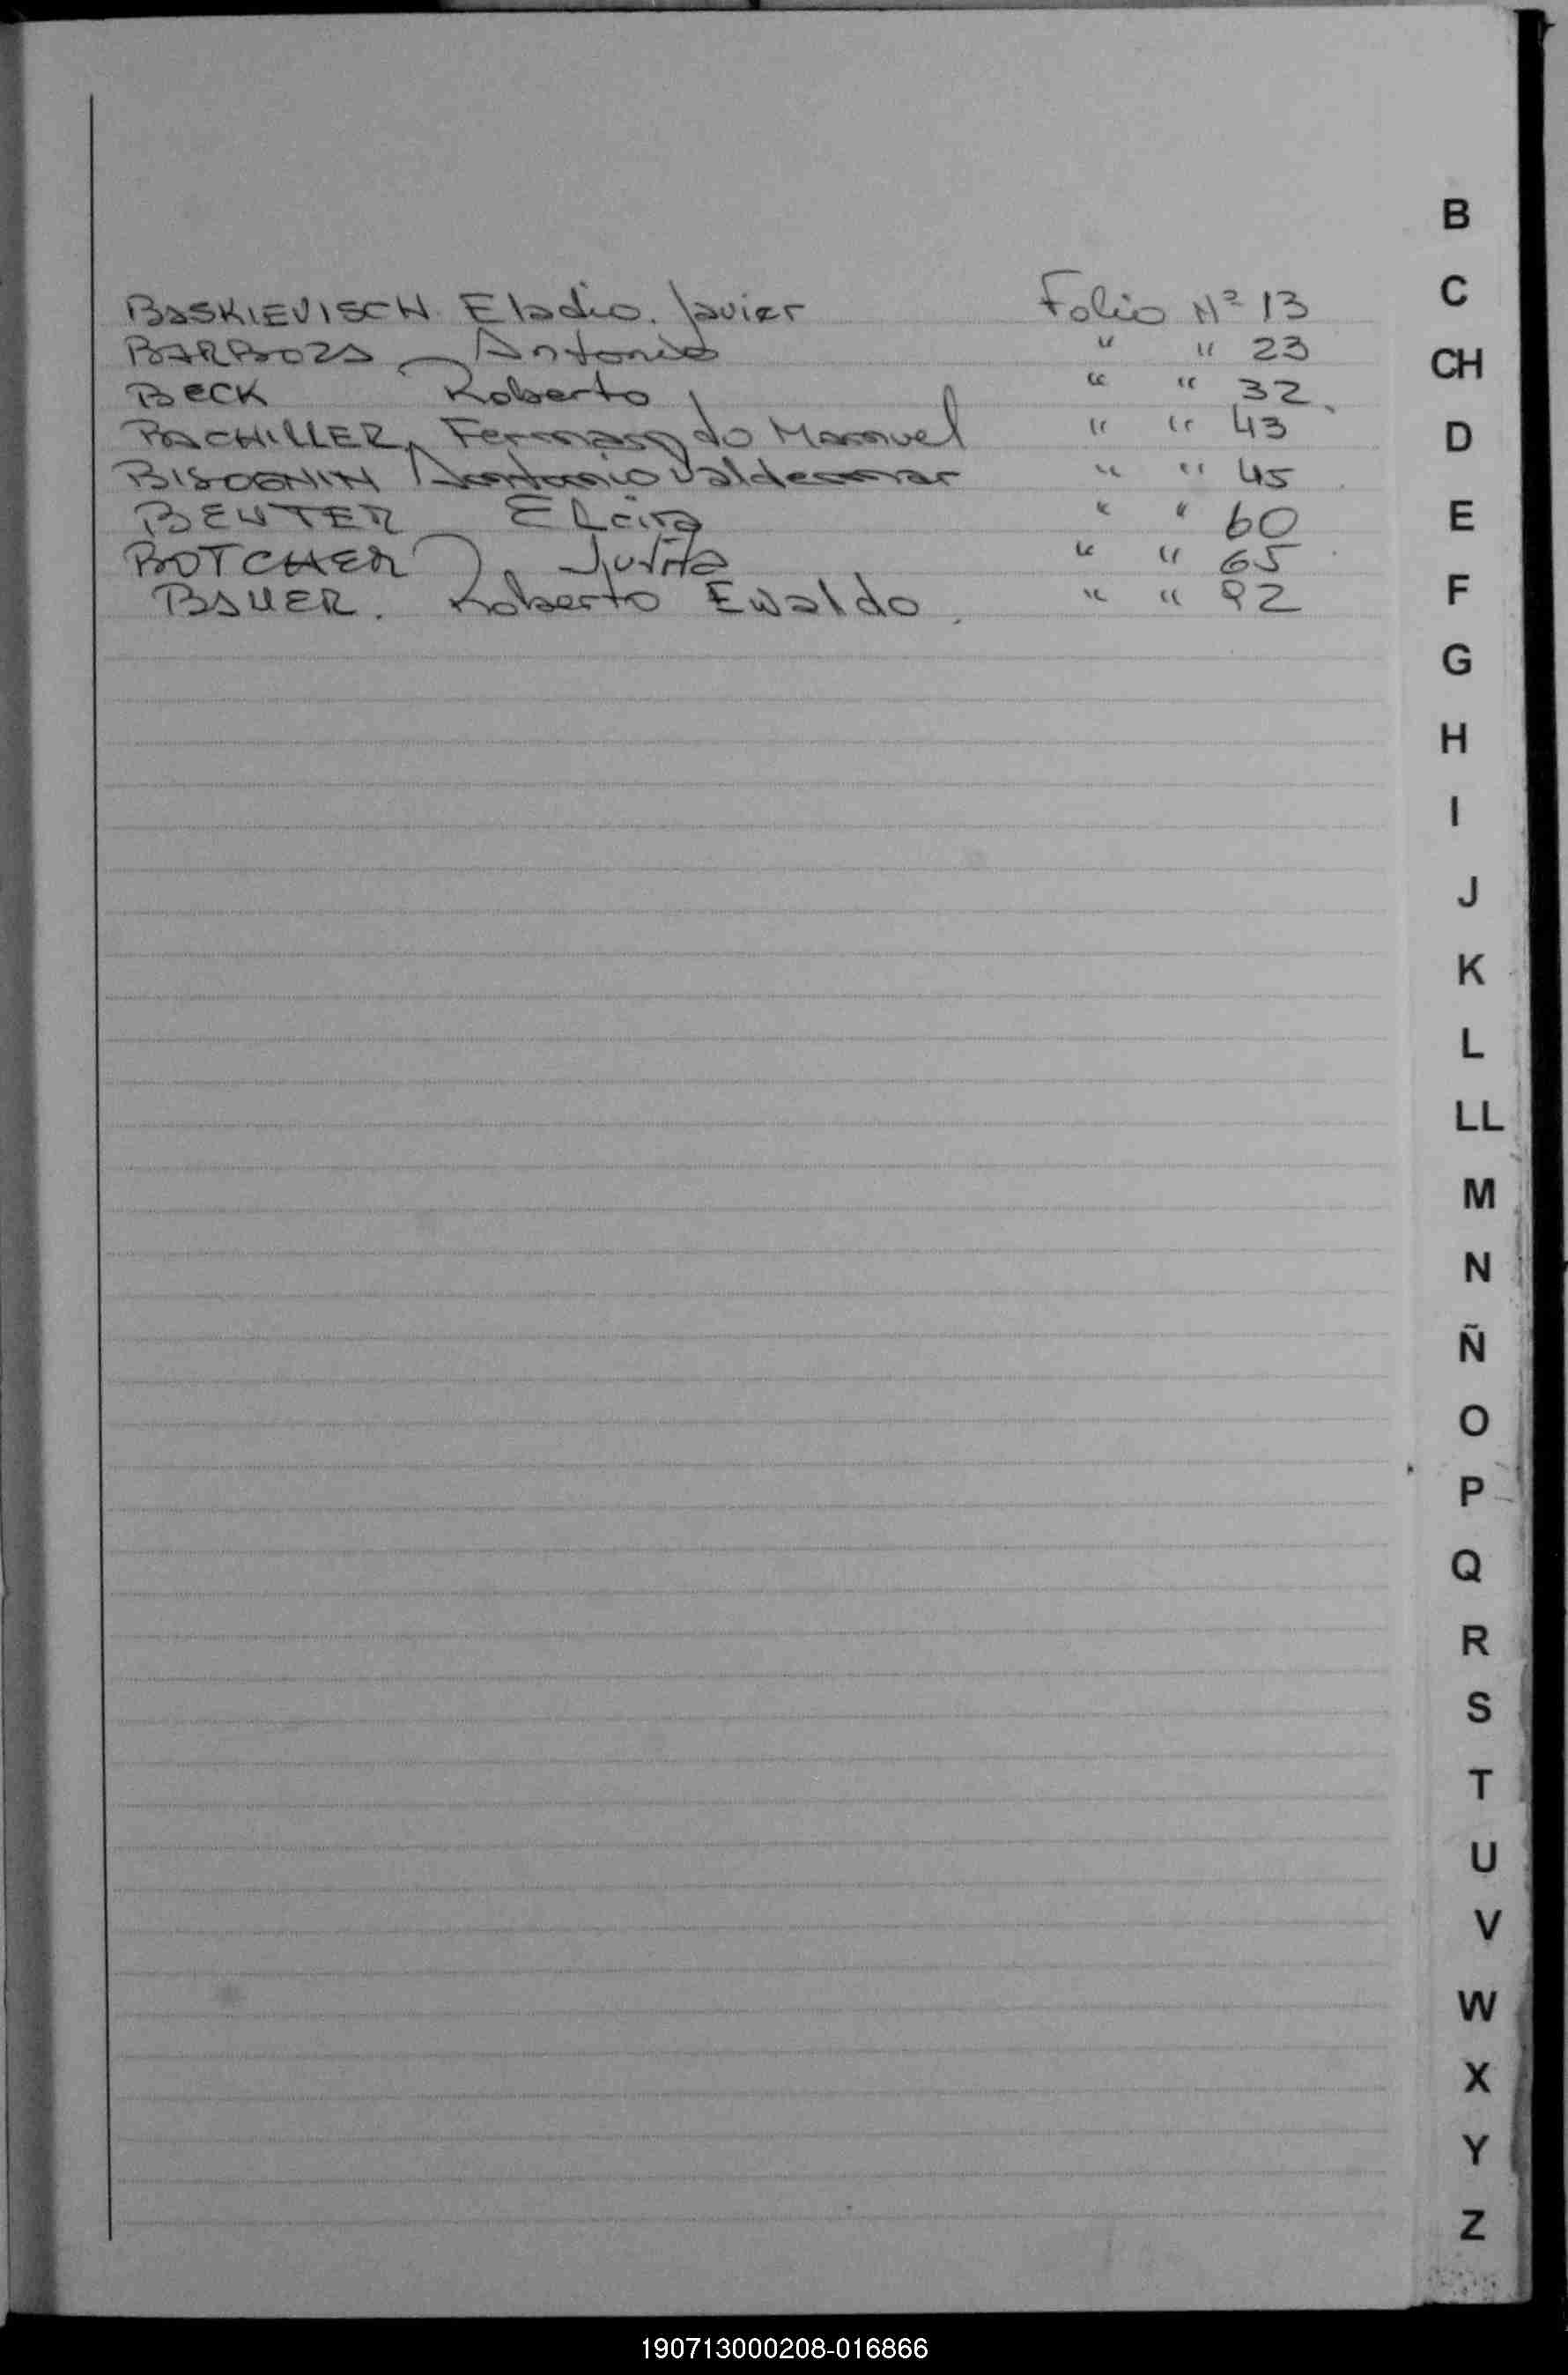 BASKIEVISCH Eladio. Javier Folio Nº 13
BARBOZA Antonio " " 23
BECK Roberto " " 32
BACHILLER, Fernando Manuel " " 43
BISOGNIN Antonio Valdemar " " 45
BEUTER " " 60
BOTCHER Judita " " 65
BAUER. Roberto Ewaldo. " " 92
B
C
CH
D
E
F
G
H
I
J
K
L
LL
M
N
Ñ
O
P
Q
R
S
T
U
V
W
X
Y
Z
190713000208-016866